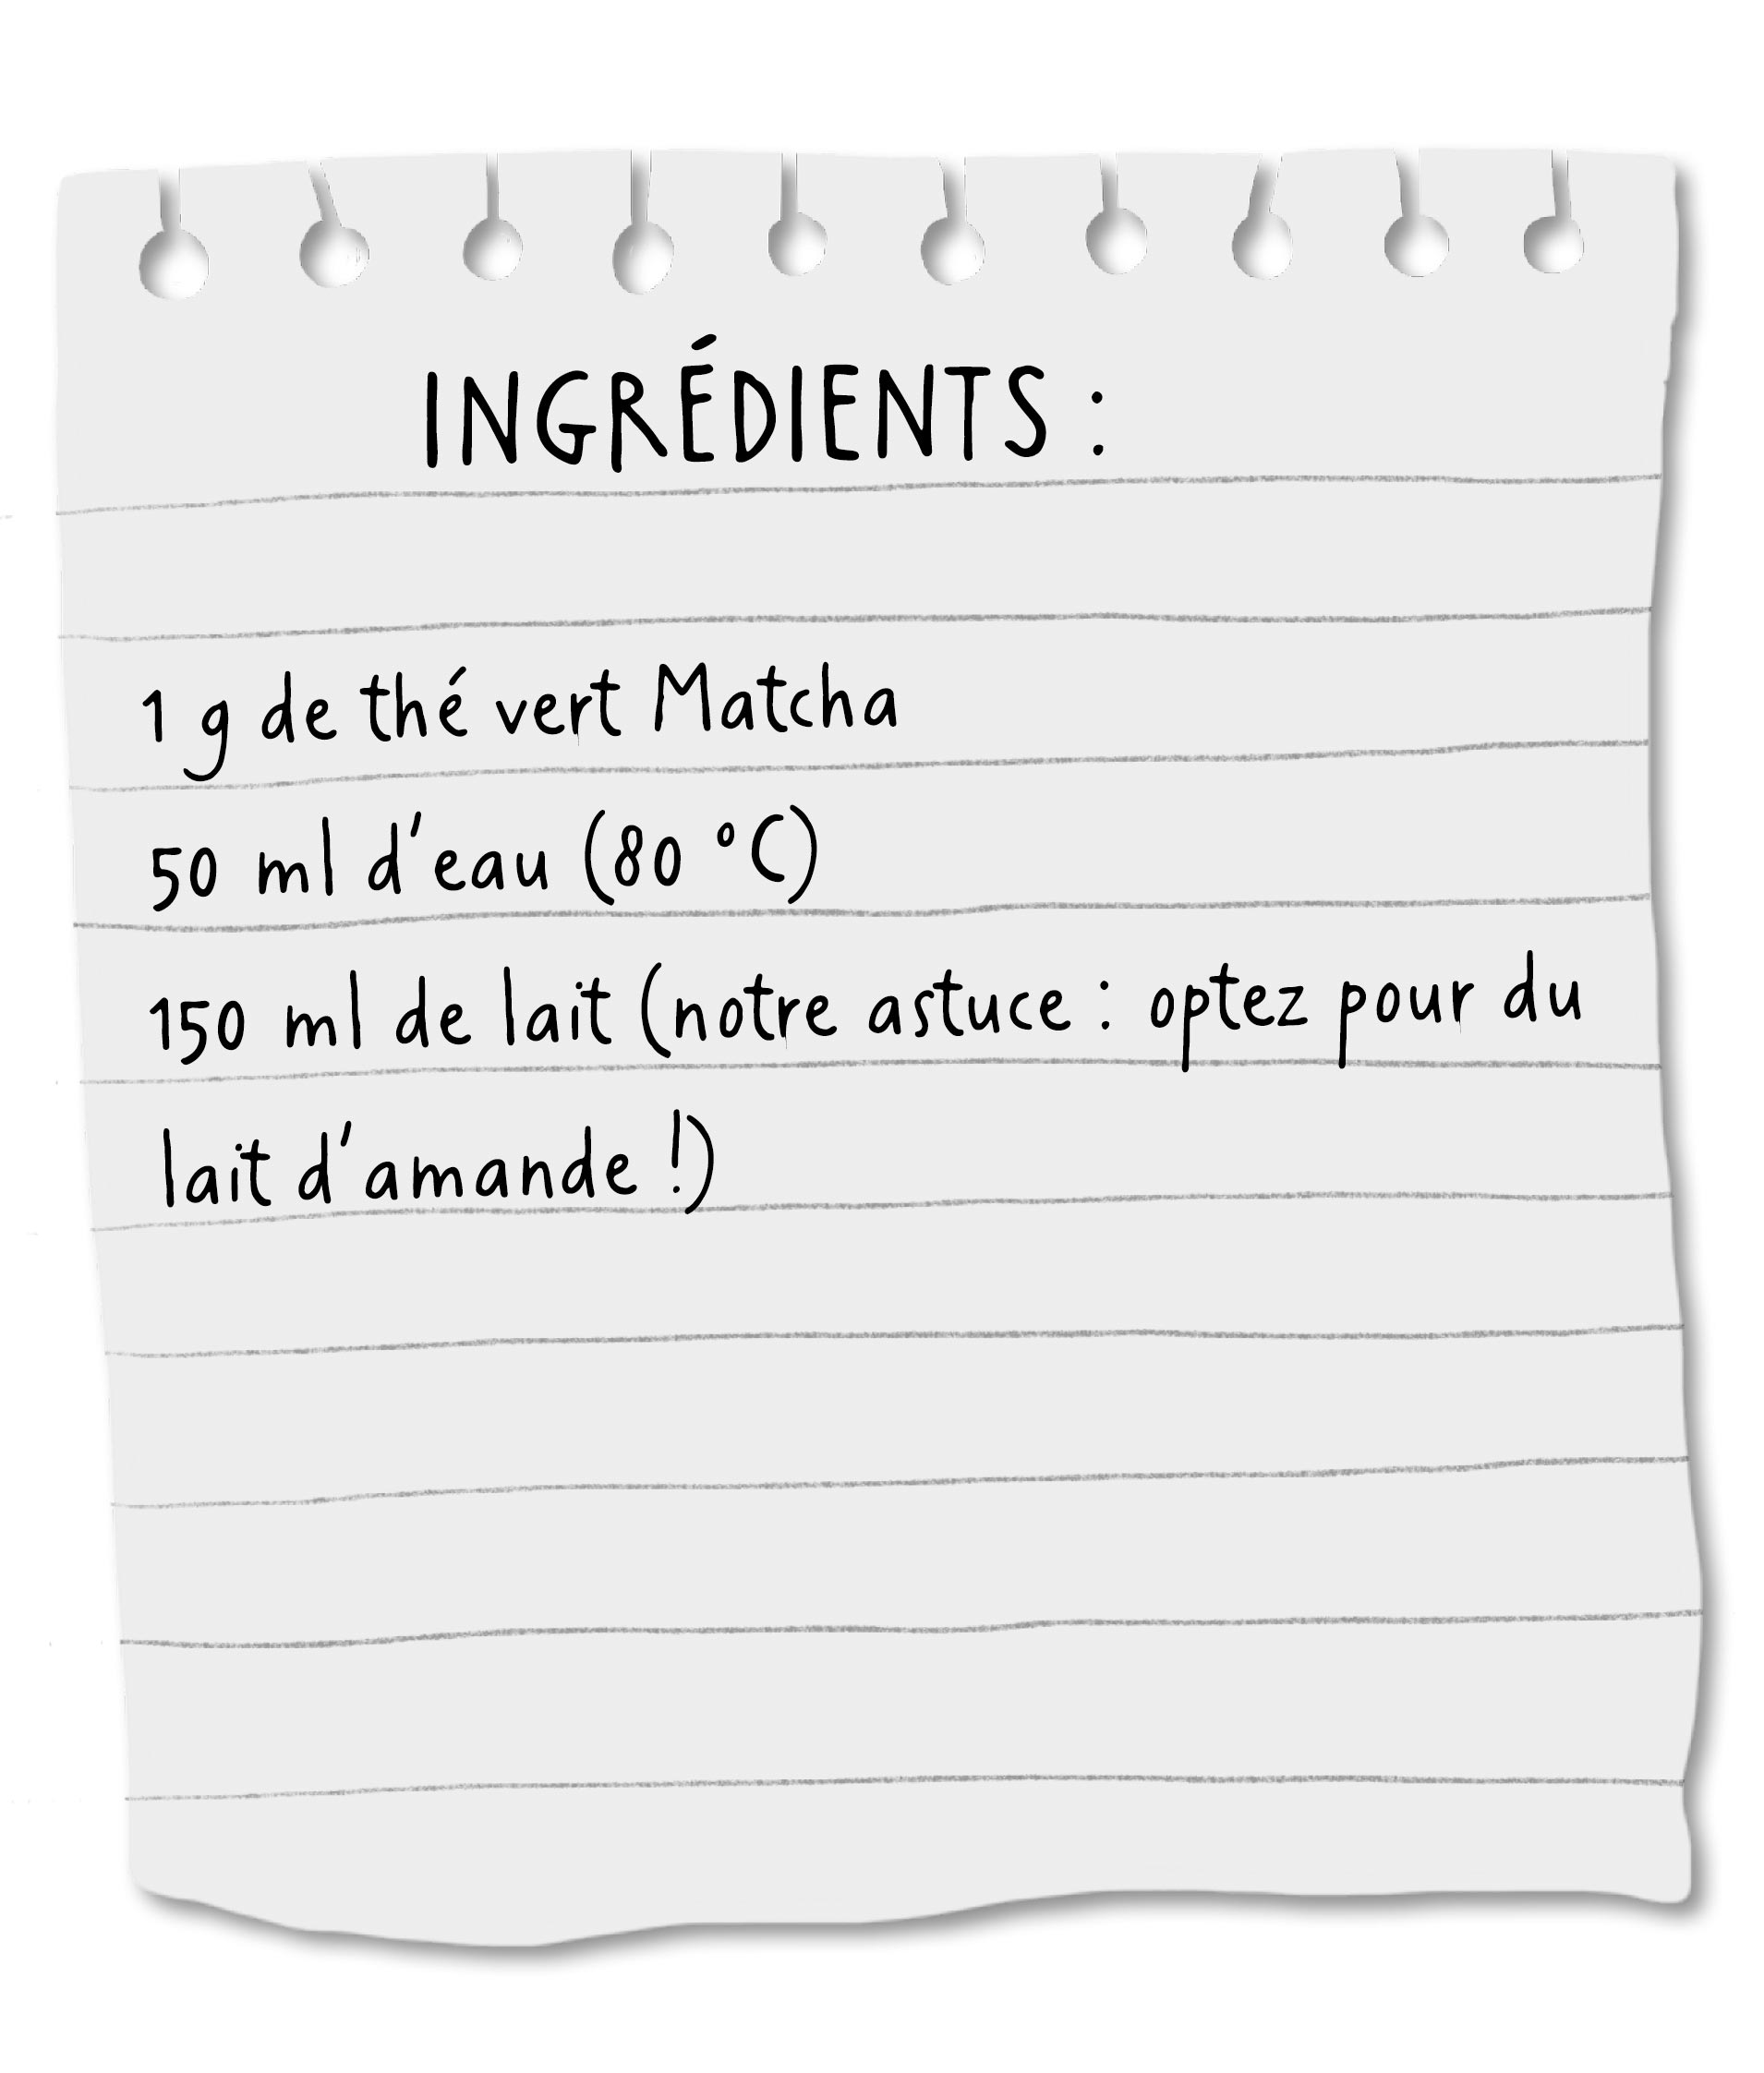 INGRÉDIENTS :
1 g de thé vert Matcha
50 ml d'eau (80 °C)
150 ml de lait (notre astuce : optez pour du
lait d'amande !)